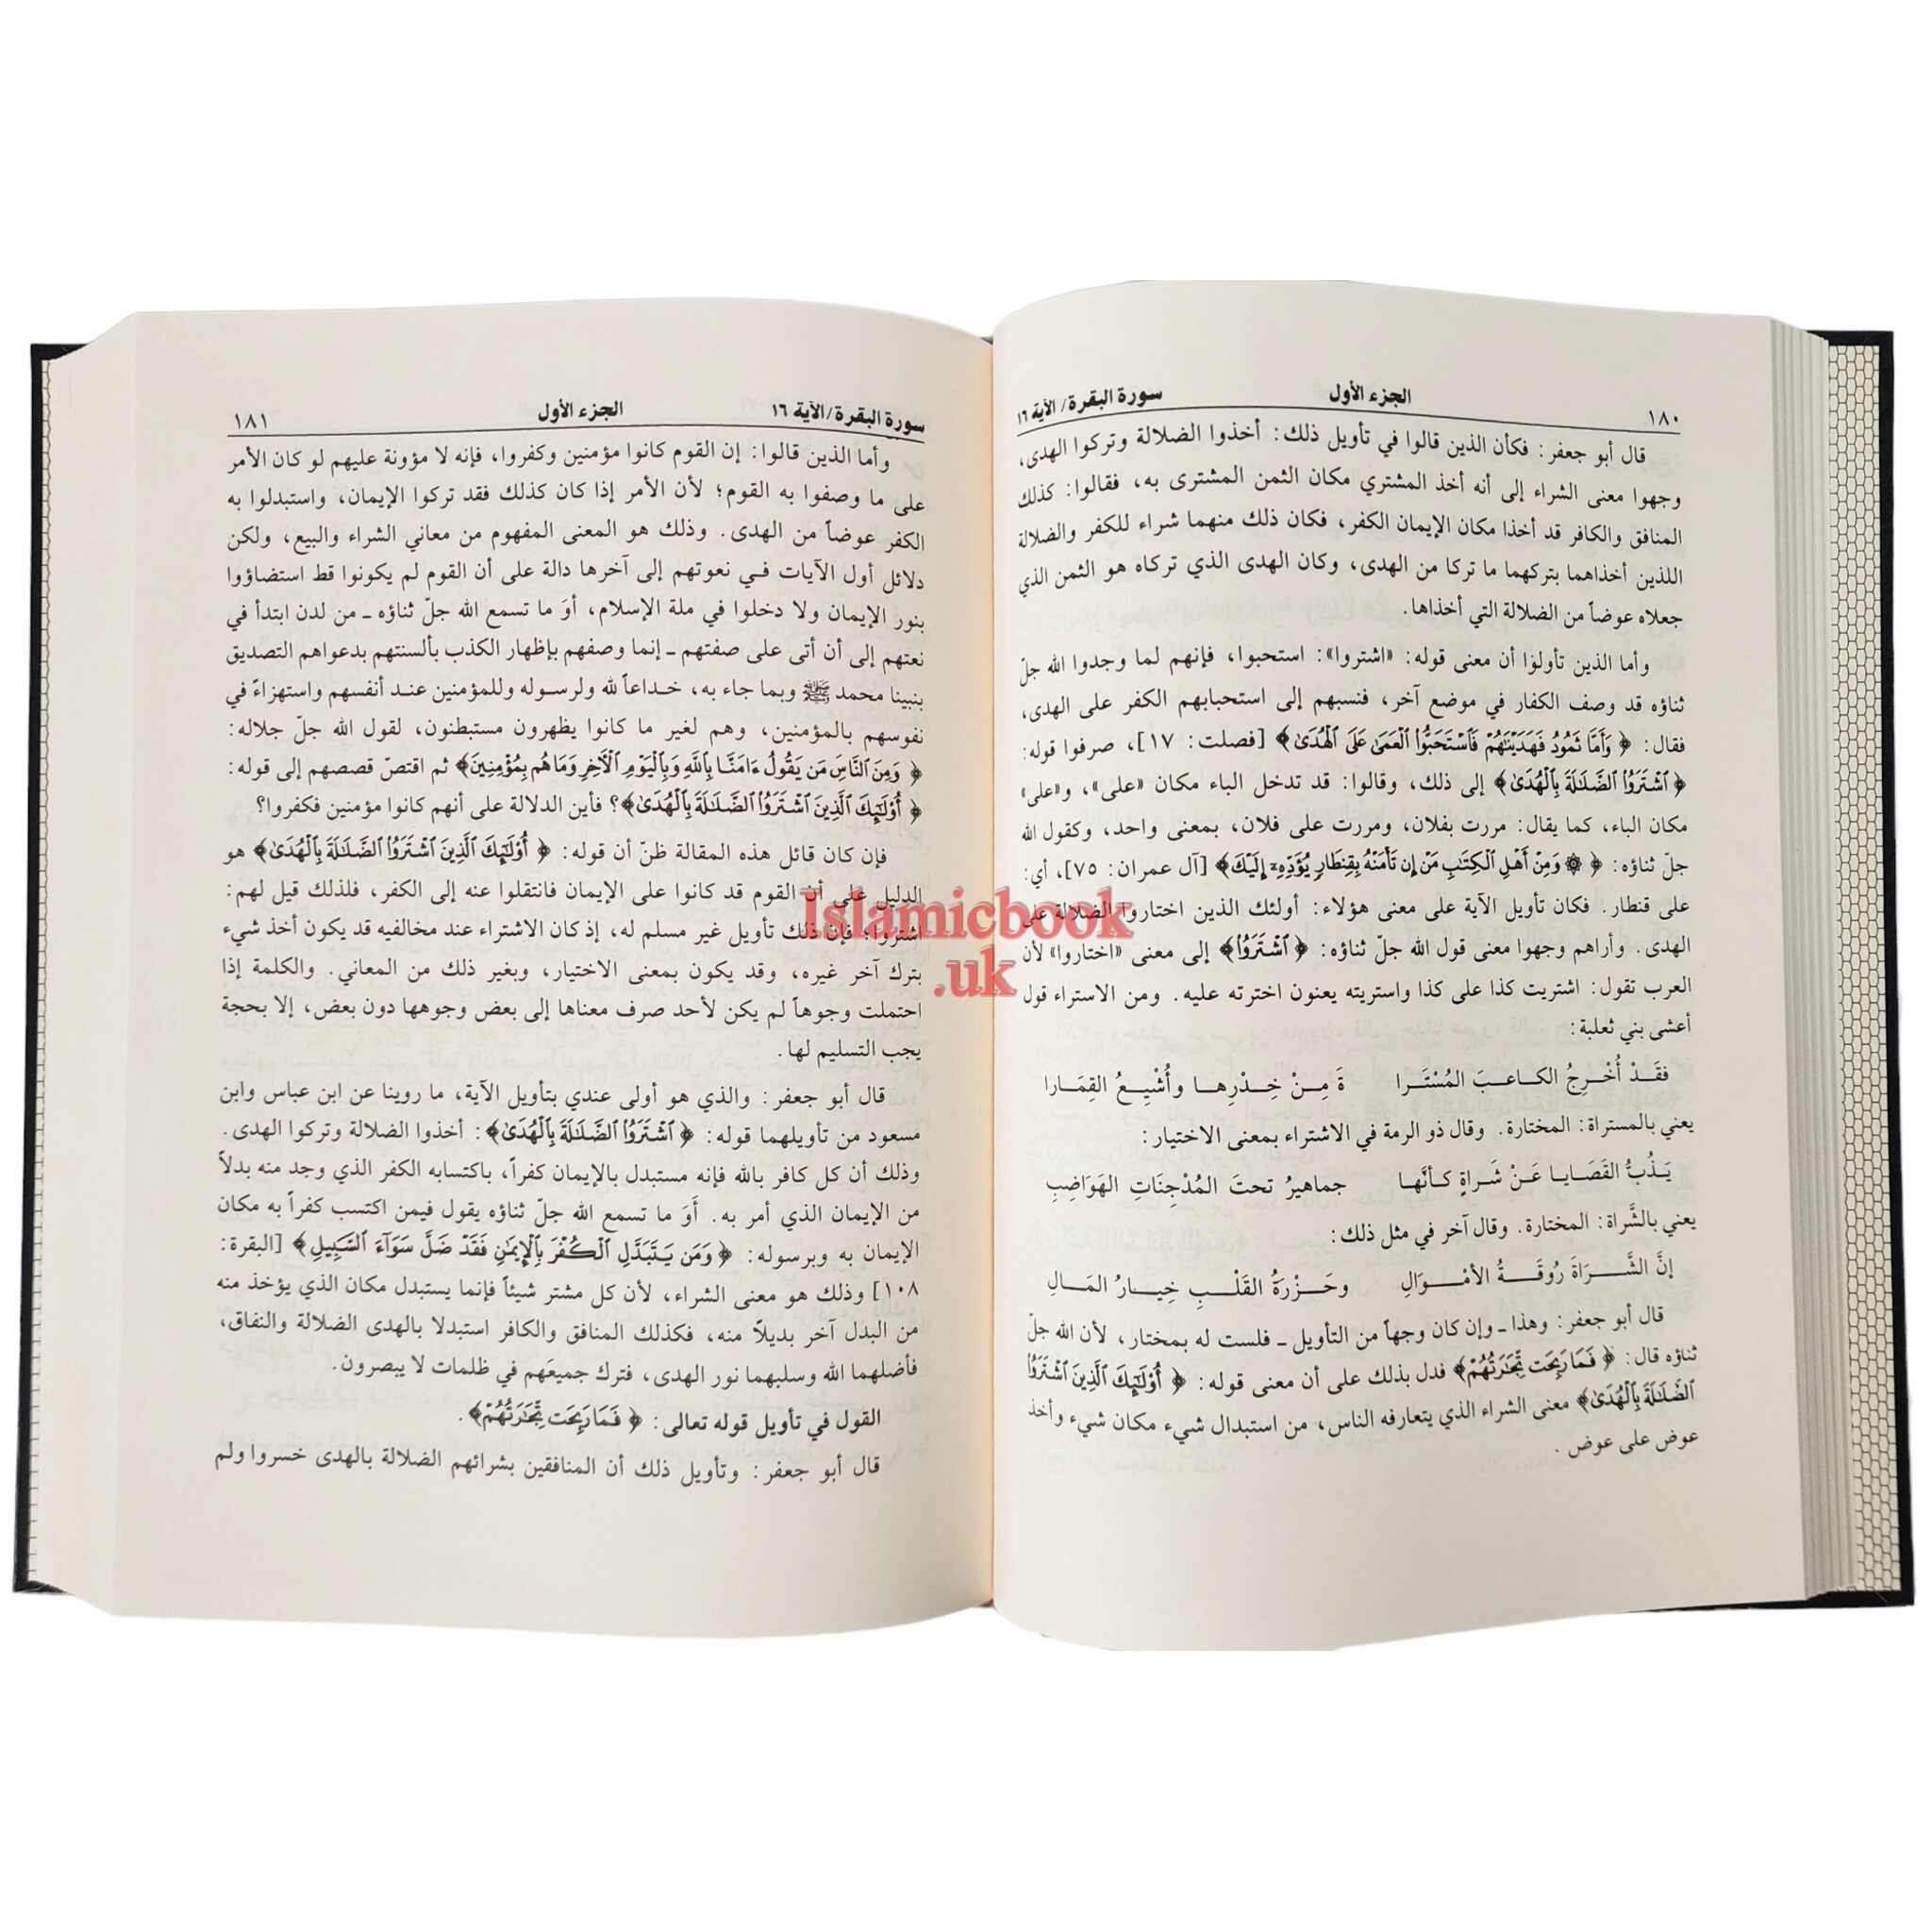 ١٨٠ الجزء الأول سورة البقرة/ الآية ١٦
قال أبو جعفر: فكأن الذين قالوا في تأويل ذلك: أخذوا الضلالة وتركوا الهدى،
وجهوا معنى الشراء إلى أنه أخذ المشتري مكان الثمن المشترى به، فقالوا: كذلك
المنافق والكافر قد أخذا مكان الإيمان الكفر، فكان ذلك منهما شراء للكفر والضلالة
اللذين أخذاهما بتركهما ما تركا من الهدى، وكان الهدى الذي تركاه هو الثمن الذي
جعلاه عوضاً من الضلالة التي أخذاها.
وأما الذين تأولوا أن معنى قوله: «اشتروا»: استحبوا، فإنهم لما وجدوا الله جلّ
ثناؤه قد وصف الكفار في موضع آخر، فنسبهم إلى استحبابهم الكفر على الهدى،
فقال: ﴿وَأَمَّا ثَمُودُ فَهَدَيْنَٰهُمْ فَٱسْتَحَبُّوا۟ ٱلْعَمَىٰ عَلَى ٱلْهُدَىٰ﴾ [فصلت: ١٧]، صرفوا قوله:
﴿ٱشْتَرَوُا۟ ٱلضَّلَٰلَةَ بِٱلْهُدَىٰ﴾ إلى ذلك، وقالوا: قد تدخل الباء مكان «على»، و«على»
مكان الباء، كما يقال: مررت بفلان، ومررت على فلان، بمعنى واحد، وكقول الله
جلّ ثناؤه: ﴿۞ وَمِنْ أَهْلِ ٱلْكِتَٰبِ مَنْ إِن تَأْمَنْهُ بِقِنطَارٍ يُؤَدِّهِۦٓ إِلَيْكَ﴾ [آل عمران: ٧٥]، أي:
على قنطار. فكان تأويل الآية على معنى هؤلاء: أولئك الذين اختاروا الضلالة على
الهدى. وأراهم وجهوا معنى قول الله جلّ ثناؤه: ﴿ٱشْتَرَوُا۟﴾ إلى معنى «اختاروا» لأن
العرب تقول: اشتريت كذا على كذا واستريته يعنون اخترته عليه. ومن الاستراء قول
أعشى بني ثعلبة:
فقَدْ أُخْرِجُ الكاعبَ المُسْتَرا ةَ مِنْ خِدْرِها وأُشْيِعُ القِمَارا
يعني بالمستراة: المختارة. وقال ذو الرمة في الاشتراء بمعنى الاختيار:
يَذُبُّ القَصَايا عَنْ شَراةٍ كأنَّها جماهيرُ تحتَ المُدْجِنَاتِ الهَوَاضِبِ
يعني بالشَّراة: المختارة. وقال آخر في مثل ذلك:
إنَّ الشَّرَاةَ رُوقَةُ الأمْوَالِ وحَزْرَةُ القَلْبِ خِيارُ المَالِ
قال أبو جعفر: وهذا ـ وإن كان وجهاً من التأويل ـ فلست له بمختار، لأن الله جلّ
ثناؤه قال: ﴿فَمَا رَبِحَت تِّجَٰرَتُهُمْ﴾ فدل بذلك على أن معنى قوله: ﴿أُو۟لَٰٓئِكَ ٱلَّذِينَ ٱشْتَرَوُا۟
ٱلضَّلَٰلَةَ بِٱلْهُدَىٰ﴾ معنى الشراء الذي يتعارفه الناس، من استبدال شيء مكان شيء وأخذ
عوض على عوض.
سورة البقرة/ الآية ١٦ الجزء الأول ١٨١
وأما الذين قالوا: إن القوم كانوا مؤمنين وكفروا، فإنه لا مؤونة عليهم لو كان الأمر
على ما وصفوا به القوم؛ لأن الأمر إذا كان كذلك فقد تركوا الإيمان، واستبدلوا به
الكفر عوضاً من الهدى. وذلك هو المعنى المفهوم من معاني الشراء والبيع، ولكن
دلائل أول الآيات في نعوتهم إلى آخرها دالة على أن القوم لم يكونوا قط استضاؤوا
بنور الإيمان ولا دخلوا في ملة الإسلام، أوَ ما تسمع الله جلّ ثناؤه ـ من لدن ابتدأ في
نعتهم إلى أن أتى على صفتهم ـ إنما وصفهم بإظهار الكذب بألسنتهم بدعواهم التصديق
بنبينا محمد ﷺ وبما جاء به، خداعاً لله ولرسوله وللمؤمنين عند أنفسهم واستهزاءً في
نفوسهم بالمؤمنين، وهم لغير ما كانوا يظهرون مستبطنون، لقول الله جلّ جلاله:
﴿وَمِنَ ٱلنَّاسِ مَن يَقُولُ ءَامَنَّا بِٱللَّهِ وَبِٱلْيَوْمِ ٱلْأَخِرِ وَمَا هُم بِمُؤْمِنِينَ﴾ ثم اقتصّ قصصهم إلى قوله:
﴿أُو۟لَٰٓئِكَ ٱلَّذِينَ ٱشْتَرَوُا۟ ٱلضَّلَٰلَةَ بِٱلْهُدَىٰ﴾؟ فأين الدلالة على أنهم كانوا مؤمنين فكفروا؟
فإن كان قائل هذه المقالة ظنّ أن قوله: ﴿أُو۟لَٰٓئِكَ ٱلَّذِينَ ٱشْتَرَوُا۟ ٱلضَّلَٰلَةَ بِٱلْهُدَىٰ﴾ هو
الدليل على أن القوم قد كانوا على الإيمان فانتقلوا عنه إلى الكفر، فلذلك قيل لهم:
اشتروا؛ فإن ذلك تأويل غير مسلم له، إذ كان الاشتراء عند مخالفيه قد يكون أخذ شيء
بترك آخر غيره، وقد يكون بمعنى الاختيار، وبغير ذلك من المعاني. والكلمة إذا
احتملت وجوهاً لم يكن لأحد صرف معناها إلى بعض وجوهها دون بعض، إلا بحجة
يجب التسليم لها.
قال أبو جعفر: والذي هو أولى عندي بتأويل الآية، ما روينا عن ابن عباس وابن
مسعود من تأويلهما قوله: ﴿ٱشْتَرَوُا۟ ٱلضَّلَٰلَةَ بِٱلْهُدَىٰ﴾: أخذوا الضلالة وتركوا الهدى.
وذلك أن كل كافر بالله فإنه مستبدل بالإيمان كفراً، باكتسابه الكفر الذي وجد منه بدلاً
من الإيمان الذي أمر به. أَوَ ما تسمع الله جلّ ثناؤه يقول فيمن اكتسب كفراً به مكان
الإيمان به وبرسوله: ﴿وَمَن يَتَبَدَّلِ ٱلْكُفْرَ بِٱلْإِيمَٰنِ فَقَدْ ضَلَّ سَوَآءَ ٱلسَّبِيلِ﴾ [البقرة:
١٠٨] وذلك هو معنى الشراء، لأن كل مشتر شيئاً فإنما يستبدل مكان الذي يؤخذ منه
من البدل آخر بديلاً منه، فكذلك المنافق والكافر استبدلا بالهدى الضلالة والنفاق،
فأضلهما الله وسلبهما نور الهدى، فترك جميعَهم في ظلمات لا يبصرون.
القول في تأويل قوله تعالى: ﴿فَمَا رَبِحَت تِّجَٰرَتُهُمْ﴾.
قال أبو جعفر: وتأويل ذلك أن المنافقين بشرائهم الضلالة بالهدى خسروا ولم
Islamicbook
.uk